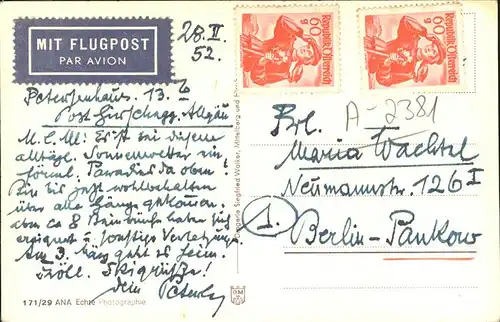 MIT FLUGPOST
PAR AVION
28.II.
52.
Republik Österreich
60 g
Republik Österreich
60 g
Petersenhaus, 13.
Post Hirschegg, Allgäu
M. l. M.! Es ist bei diesem
alltägl. Sonnenwetter ein
förml. Paradies da oben!
Bin bis jetzt wohlbehalten
über alle Hänge gekommen.
aber ca 8 Beinbrüche haben sich
ereignet u. sonstige Verletzungen.
Am 3. März geht es heim.
Skigrüße!
Dein Peterle
171/29 ANA Echte Photographie
A-2381
Frl.
Maria Wachtel
Neumannstr. 126 I
1.
Berlin-Pankow